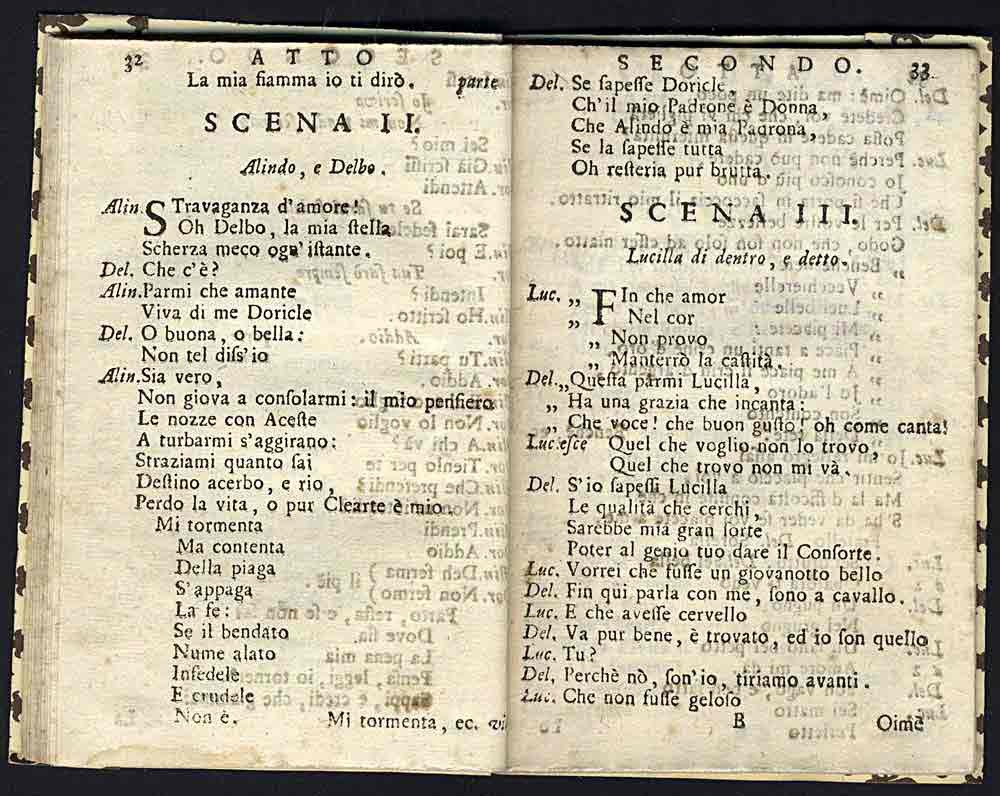 32 ATTO
La mia fiamma io ti dirò. parte
SCENA II.
Alindo, e Delbo.
Alin. STravaganza d'amore!
Oh Delbo, la mia ſtella
Scherza meco ogn' iſtante.
Del. Che c'è?
Alin. Parmi che amante
Viva di me Doricle
Del. O buona, o bella:
Non tel diſs'io
Alin. Sia vero,
Non giova a conſolarmi: il mio penſiero
Le nozze con Aceſte
A turbarmi s'aggirano:
Straziami quanto ſai
Deſtino acerbo, e rio,
Perdo la vita, o pur Clearte è mio.
Mi tormenta
Ma contenta
Della piaga
S'appaga
La fe:
Se il bendato
Nume alato
Infedele
E crudele
Non è.
Mi tormenta, ec.
SECONDO. 33
Del. Se ſapeſſe Doricle,
Ch'il mio Padrone è Donna,
Che Alindo è mia Padrona,
Se la ſapeſſe tutta
Oh reſteria pur brutta.
SCENA III.
Lucilla di dentro, e detto.
Luc. „ FIn che amor
„ Nel cor
„ Non provo
„ Manterrò la caſtità.
Del. „ Queſta parmi Lucilla,
„ Ha una grazia che incanta:
„ Che voce! che buon guſto! oh come canta!
Luc. eſce Quel che voglio non lo trovo,
Quel che trovo non mi và.
Del. S'io ſapeſſi Lucilla
Le qualità che cerchi,
Sarebbe mia gran ſorte
Poter al genio tuo dare il Conſorte.
Luc. Vorrei che fuſſe un giovanotto bello
Del. Fin qui parla con me, ſono a cavallo.
Luc. E che aveſſe cervello
Del. Va pur bene, è trovato, ed io ſon quello
Luc. Tu?
Del. Perchè nò, ſon'io, tiriamo avanti.
Luc. Che non fuſſe geloſo
B Oimè